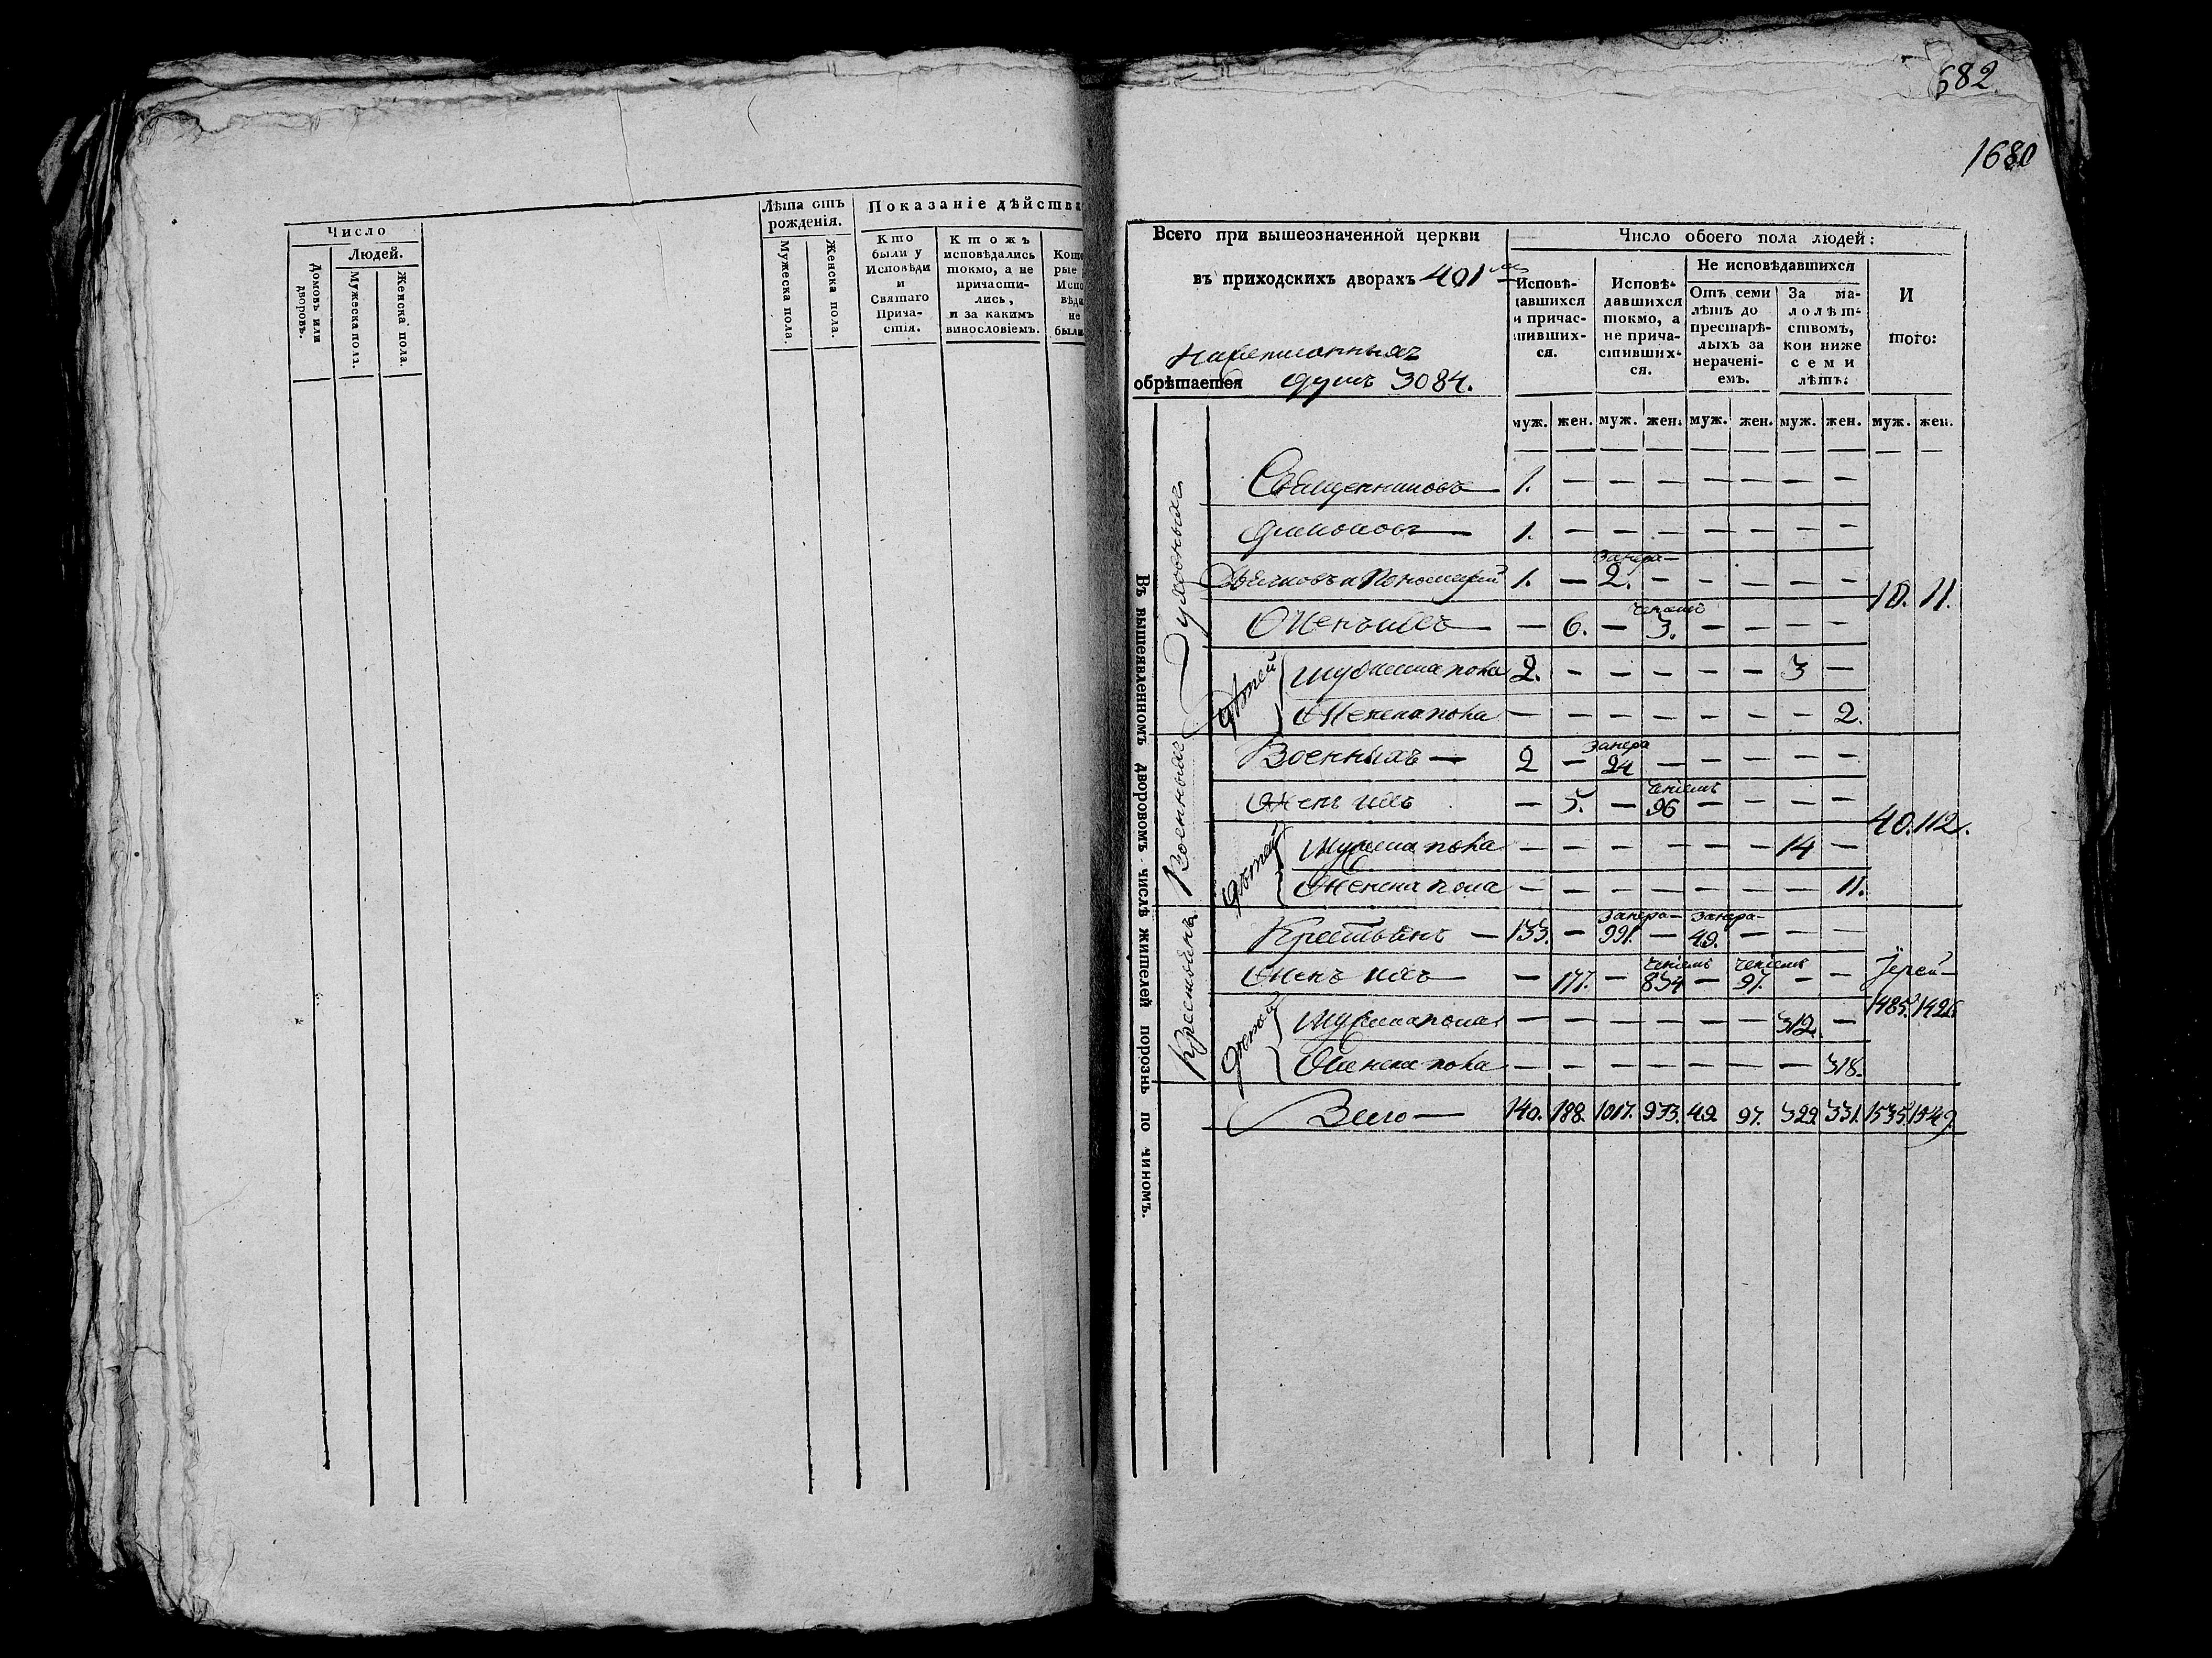 Число
Людей.
Домовъ или дворовъ.
Мужеска пола.
Женска пола.
Лѣта отъ рожденія.
Мужеска пола.
Женска пола.
Показаніе дѣйства
Кто были у Исповѣди и Святаго Прича-стія.
Ктожъ исповѣдались токмо, а не причасти-лись, и за какимъ винословіемъ.
Кото рые Испо вѣди не были
682.
1680
Всего при вышеозначенной церкви
въ приходскихъ дворахъ 401
написанныхъ
обрѣтается душъ 3084.
Число обоего пола людей:
Исповѣ-давшихся и причас-тивших-ся.
Исповѣ-давшихся токмо, а не прича-стивших-ся.
Не исповѣдавшихся
Отъ семи лѣтъ до престарѣ-лыхъ за нерачені-емъ.
За ма-лолѣт-ствомъ, кои ниже семи лѣтъ:
И того:
муж. жен. муж. жен. муж. жен. муж. жен. муж. жен.
Въ вышеявленномъ дворовомъ числѣ жителей порознь по чиномъ.
Духовныхъ
Священниковъ — 1. — — — — — — —
Діаконовъ — 1. — — — — — — —
занера-
Дьячковъ и Пономарей 1. — 2. — — — — — —
ченіемъ
Женъ ихъ — — 6. — 3. — — — —
10. 11.
дѣтей
Мужеска пола 2. — — — — — 3 —
Женска пола — — — — — — — 2.
Военныхъ
занера
Военныхъ — 2 — 24 — — — — —
ченіемъ
Женъ ихъ — 5. — 96 — — — —
40. 112.
дѣтей
Мужеска пола — — — — — — 14 —
Женска пола — — — — — — — 11.
Крестьянъ
занера- занера-
Крестьянъ — 133. — 991. — 49. — — —
ченіемъ ченіемъ
Женъ ихъ — — 177. — 834 — 97. — —
Іерей
1485. 1426.
дѣтей
Мужеска пола — — — — — — 312. —
Женска пола — — — — — — — 318.
Всего — 140. 188. 1017. 933. 49. 97. 329. 331. 1535. 1549.